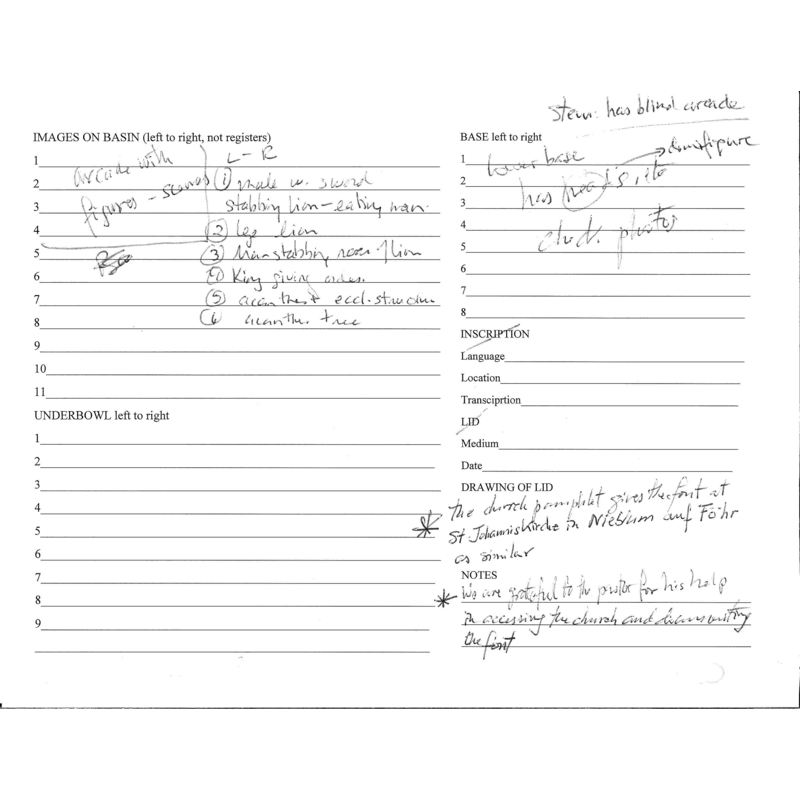 IMAGES ON BASIN (left to right, not registers)
1
2 arcade with
3 figures - scenes
4
5
6
7
8
9
10
11
L - R
① male w. sword
stabbing lion-eating man.
② leg lion
③ Man stabbing lion
④ King giving
⑤ acanthus + eccl. structure
⑥ acanthus tree
UNDERBOWL left to right
1
2
3
4
5
6
7
8
9
stem: has blind arcade
BASE left to right
1 lower base
2 has heads, → demifigure
3
4 check photos
5
6
7
8
INSCRIPTION
Language
Location
Transciprtion
LID
Medium
Date
DRAWING OF LID
* The church pamphlet gives the font at
St Johanniskirche in Nieblum auf Föhr
as similar
NOTES
* We are grateful to the pastor for his help
in accessing the church and documenting
the font